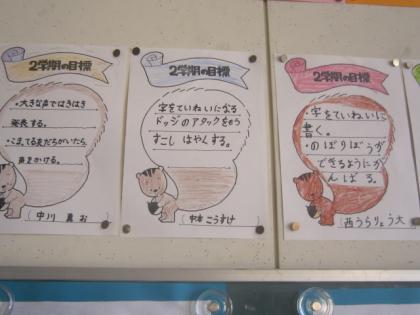 2学期の目標
・大きな声ではきはき
発表する。
・こまってる友だちがいたら、
声をかける。
(中川 真お)
2学期の目標
字をていねいになる
ドッジのアタックをもう
すこし はやくする。
(中本 こうすけ)
2学期の目標
・字をていねいに
書く。
・のぼりぼうが
できるようにが
んばる。
(西うらりょう大)